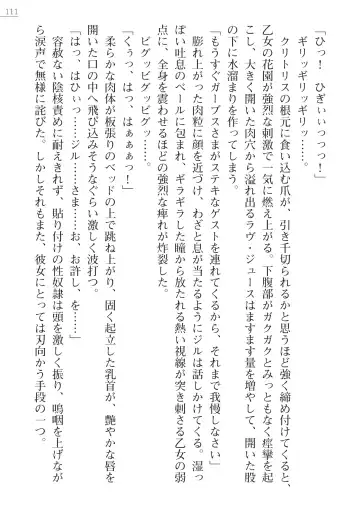 111
「ひっ！　ひぎぃぃっっっ！」
ギリッギリッギリッ……。
クリトリスの根元に食い込む爪が、引き千切られるかと思うほど強く締め付けてくると、
乙女の花園が強烈な刺激で一気に燃え上がる。下腹部がガクガクとみっともなく痙攣を起
こし、大きく開いた肉穴から溢れ出るラヴ・ジュースはますます量を増やして、開いた股
の下に水溜まりを作ってしまう。
「もうすぐガーブスさまがステキなゲストを連れてくるから、それまで我慢しなさい」
膨れ上がった肉粒に顔を近づけ、わざと息が当たるようにジルは話しかけてくる。湿っ
ぽい吐息のベールに包まれ、ギラギラした瞳から放たれる熱い視線が突き刺さる乙女の弱
点に、全身を震わせるほどの強烈な痺れが炸裂した。
ビグッビグッビグッ……。
「くぅっ、はっ、はぁぁぁっ！」
柔らかな肉体が板張りのベッドの上で跳ね上がり、固く起立した乳首が、艶やかな唇を
開いた口の中へ飛び込みそうなぐらい激しく波打つ。
「はっ、はひぃっ……ジル……さま……お、お許し、を……」
容赦ない陰核責めに耐えきれず、貼り付けの性奴隷は頭を激しく振り、嗚咽を上げなが
ら涙声で無様に詫びた。しかしそれもまた、彼女にとっては刃向かう手段の一つ。